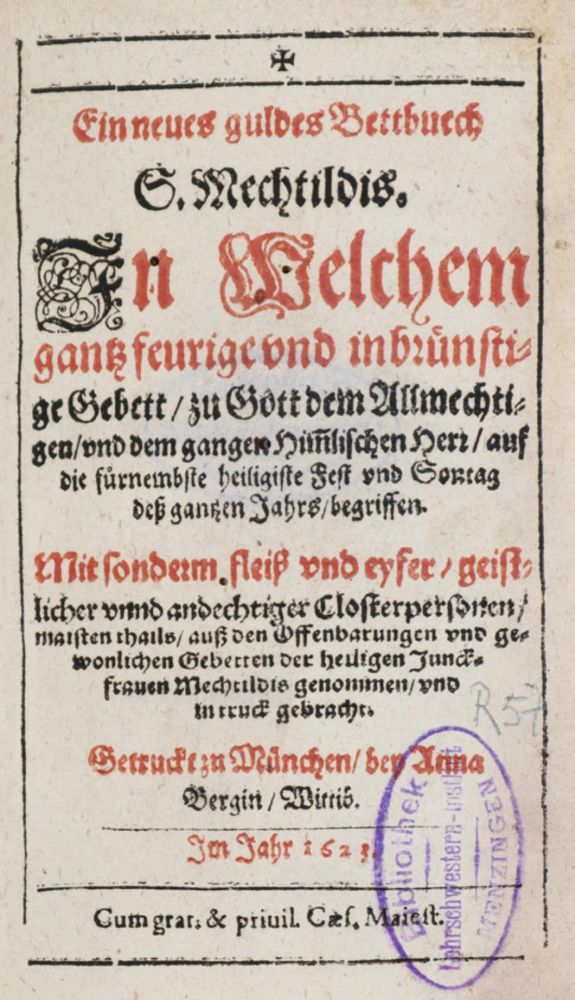 ✠
Ein neues guldes Bettbuech
S. Mechtildis.
In Welchem
gantz feurige vnd inbrünsti-
ge Gebett / zu Gott dem Allmechti-
gen / vnd dem gantzen Him̃lischen Herr / auf
die fürnembste heiligiste Fest vnd Sontag
deß gantzen Jahrs / begriffen.
Mit sonderm fleiß vnd eyfer / geist-
licher vnnd andechtiger Closterpersonen /
maisten thails / auß den Offenbarungen vnd ge-
wonlichen Gebetten der heiligen Junck-
frauen Mechtildis genommen / vnd
in truck gebracht.
Getruckt zu München / bey Anna
Bergin / Wittib.
Im Jahr 1623.
Cum grat. & priuil. Cæs. Maiest.
R 57
Bibliothek
Lehrschwestern-Institut
MENZINGEN